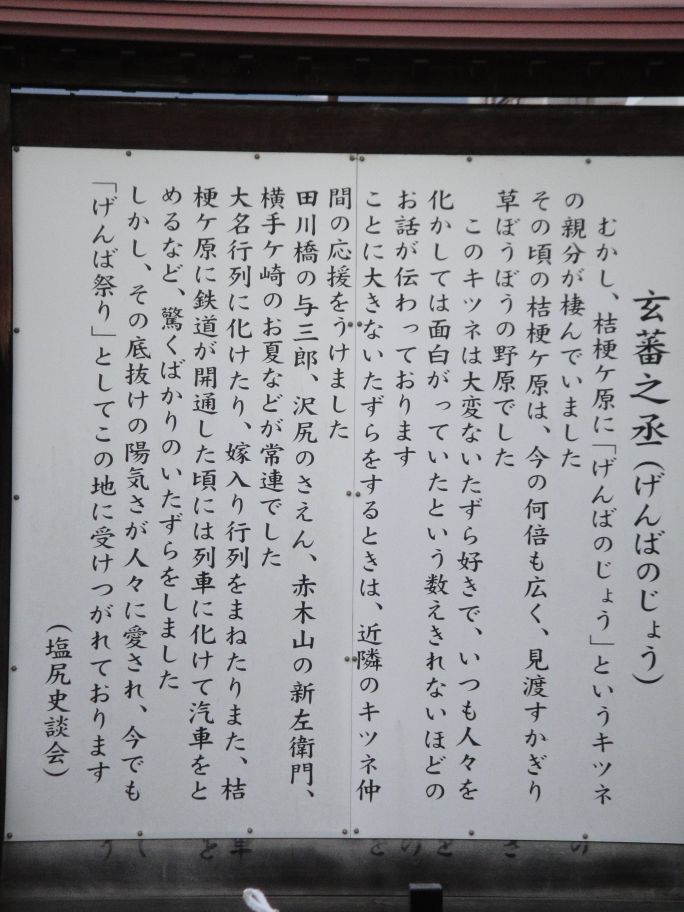 玄蕃之丞(げんばのじょう)
むかし、桔梗ケ原に「げんばのじょう」というキツネ
の親分が棲んでいました
その頃の桔梗ケ原は、今の何倍も広く、見渡すかぎり
草ぼうぼうの野原でした
このキツネは大変ないたずら好きで、いつも人々を
化かしては面白がっていたという数えきれないほどの
お話が伝わっております
ことに大きないたずらをするときは、近隣のキツネ仲
間の応援をうけました
田川橋の与三郎、沢尻のさえん、赤木山の新左衛門、
横手ケ崎のお夏などが常連でした
大名行列に化けたり、嫁入り行列をまねたりまた、桔
梗ケ原に鉄道が開通した頃には列車に化けて汽車をと
めるなど、驚くばかりのいたずらをしました
しかし、その底抜けの陽気さが人々に愛され、今でも
「げんば祭り」としてこの地に受けつがれております
(塩尻史談会)